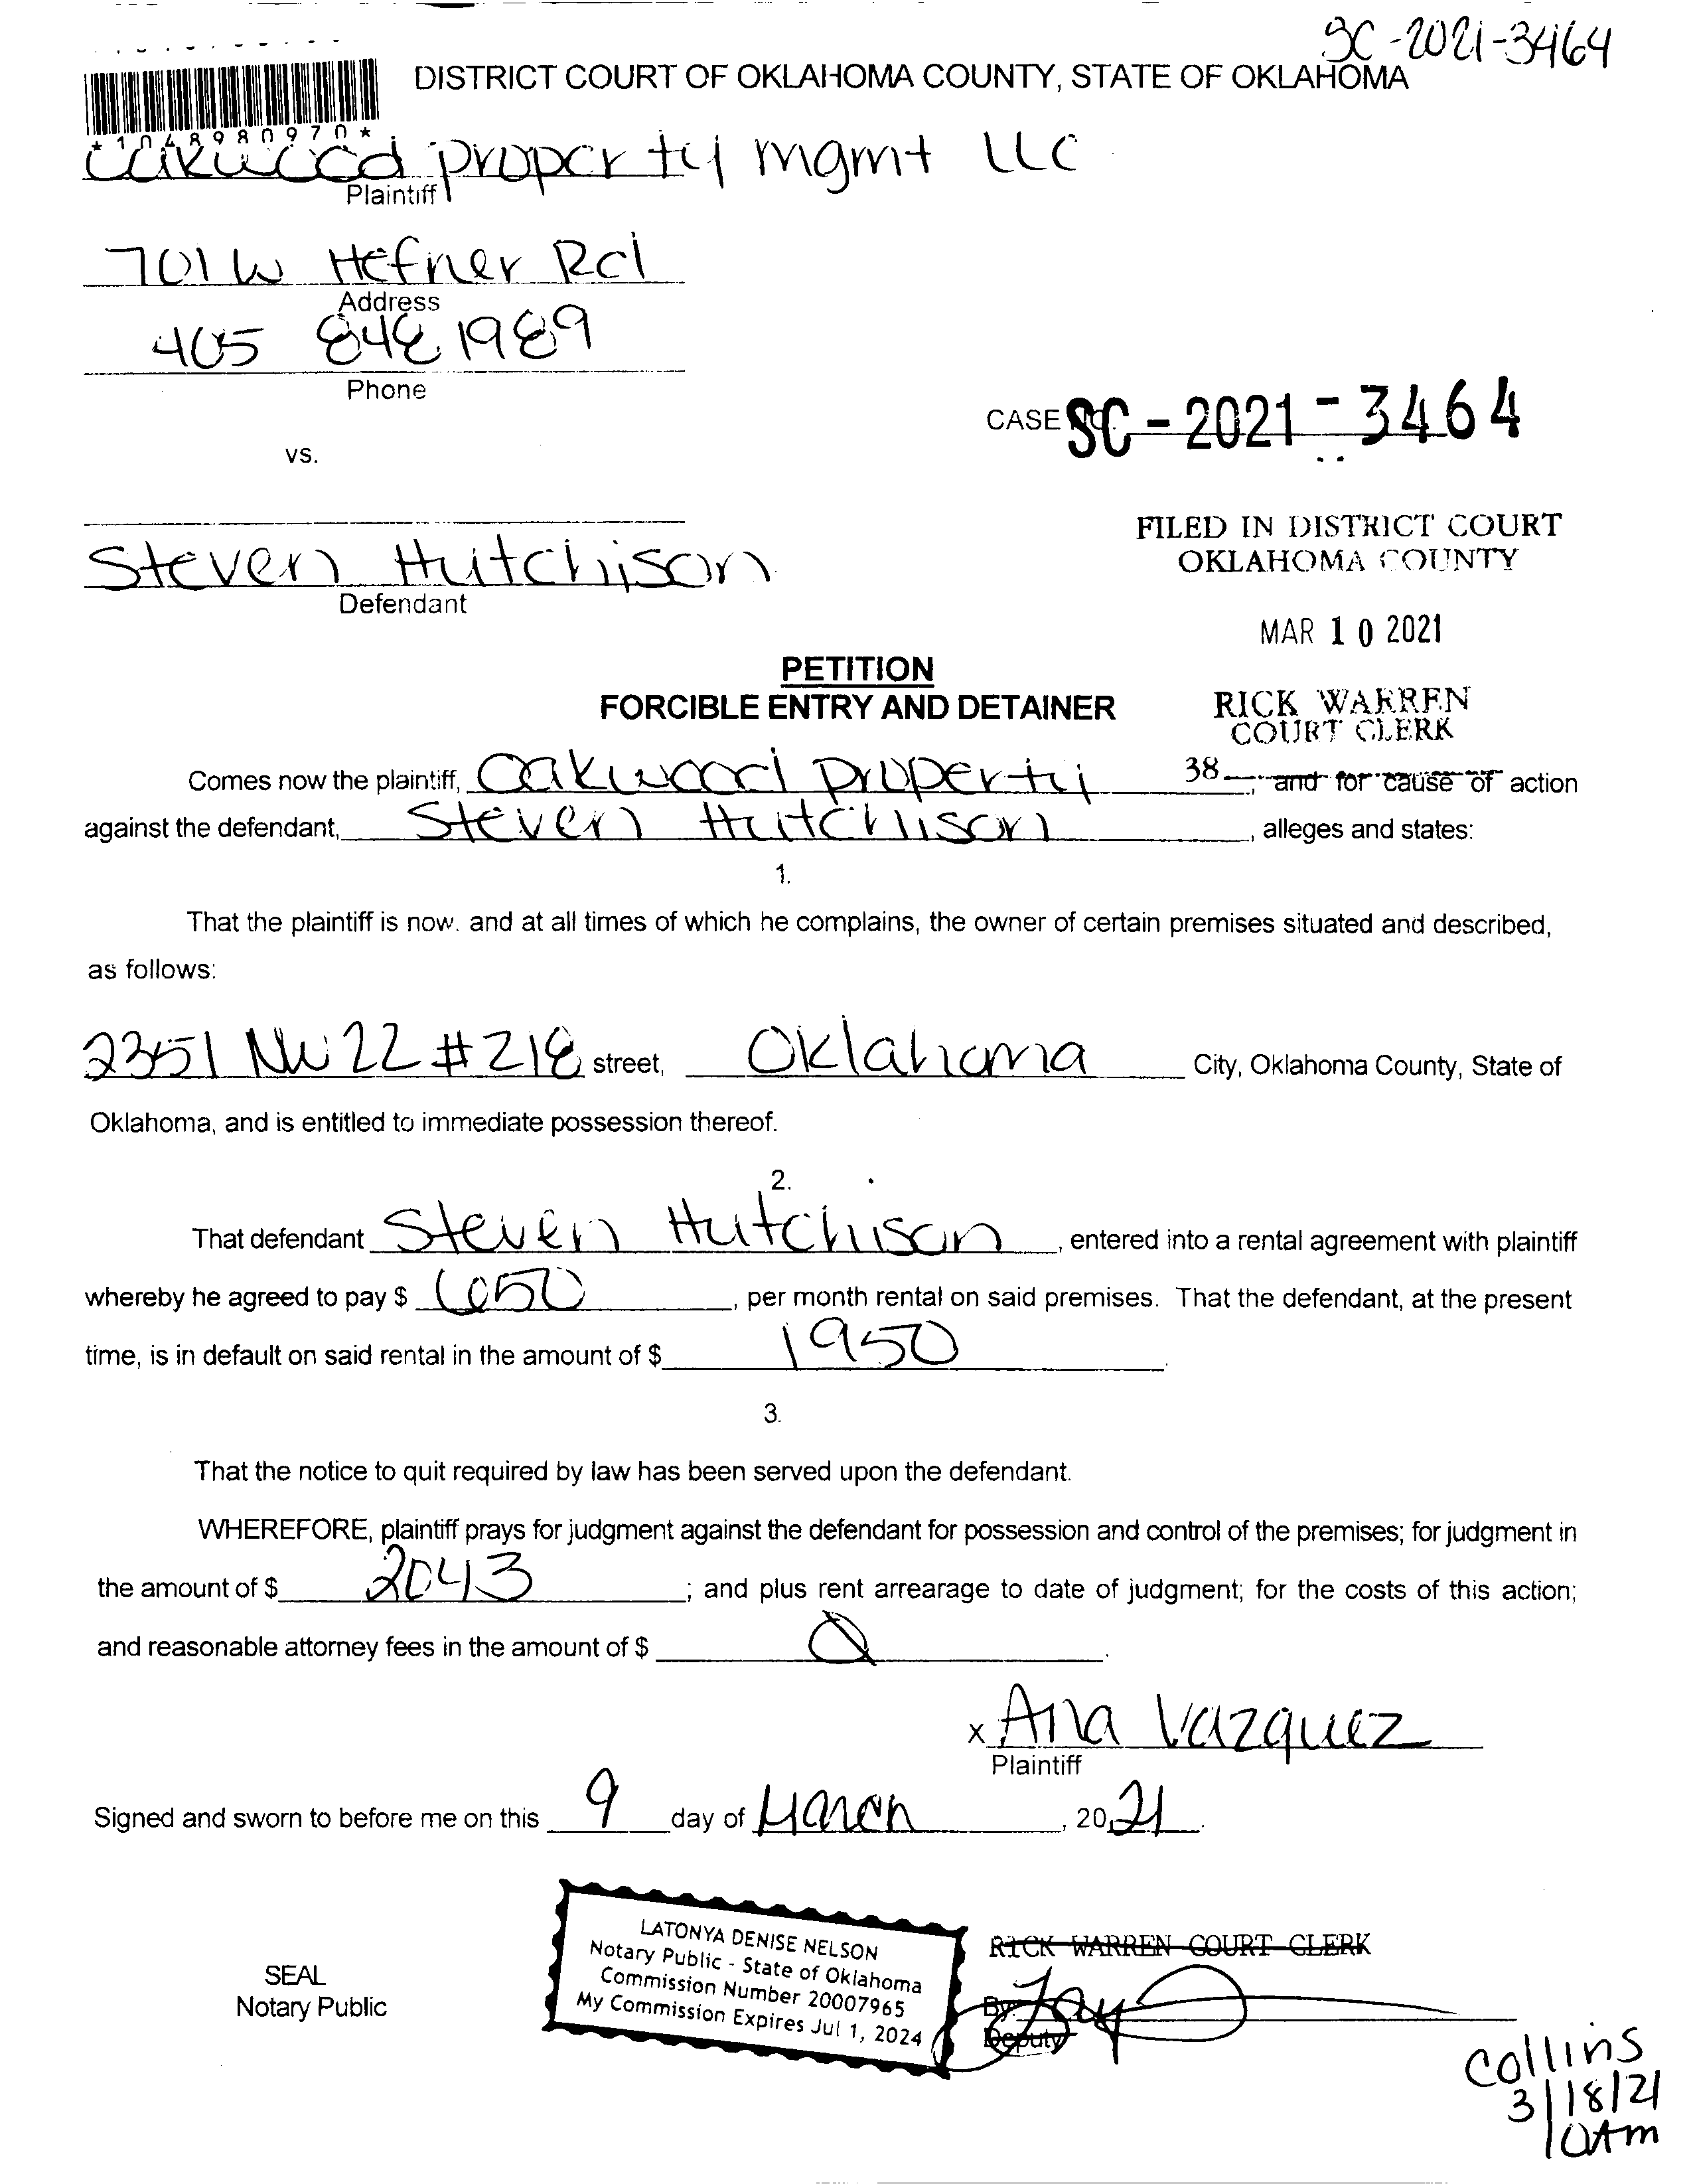 SC-2021-3464
DISTRICT COURT OF OKLAHOMA COUNTY, STATE OF OKLAHOMA
*1048980970*
Oakwood property mgmt LLC
Plaintiff
701 W Hefner Rd
Address
405 848 1989
Phone
CASE NO. SC-2021-3464
vs.
FILED IN DISTRICT COURT
OKLAHOMA COUNTY
Steven Hutchison
Defendant
MAR 10 2021
PETITION
FORCIBLE ENTRY AND DETAINER
RICK WARREN
COURT CLERK
Comes now the plaintiff, Oakwood property 38, and for cause of action
against the defendant, Steven Hutchison, alleges and states:
1.
That the plaintiff is now, and at all times of which he complains, the owner of certain premises situated and described,
as follows:
2351 NW 22 #218 street, Oklahoma City, Oklahoma County, State of
Oklahoma, and is entitled to immediate possession thereof.
2.
That defendant Steven Hutchison, entered into a rental agreement with plaintiff
whereby he agreed to pay $ 650, per month rental on said premises. That the defendant, at the present
time, is in default on said rental in the amount of $ 1950.
3.
That the notice to quit required by law has been served upon the defendant.
WHEREFORE, plaintiff prays for judgment against the defendant for possession and control of the premises; for judgment in
the amount of $ 2043; and plus rent arrearage to date of judgment; for the costs of this action;
and reasonable attorney fees in the amount of $ 0.
x Ana Vazquez
Plaintiff
Signed and sworn to before me on this 9 day of March, 2021.
LATONYA DENISE NELSON
Notary Public - State of Oklahoma
Commission Number 20007965
My Commission Expires Jul 1, 2024
RICK WARREN COURT CLERK
SEAL
Notary Public
By:
Deputy
Collins
3/18/21
10AM